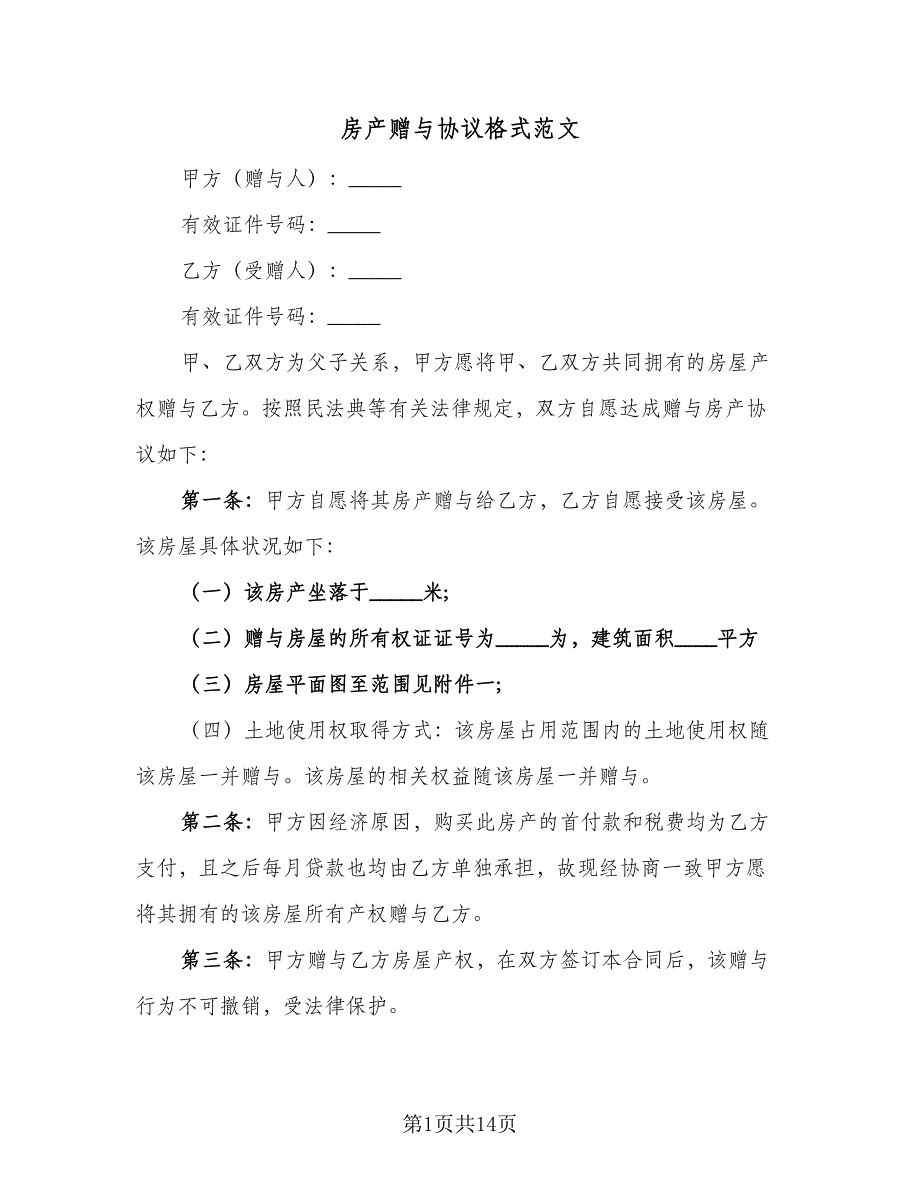 房产赠与协议格式范文
甲方（赠与人）：_____
有效证件号码：_____
乙方（受赠人）：_____
有效证件号码：_____
甲、乙双方为父子关系，甲方愿将甲、乙双方共同拥有的房屋产
权赠与乙方。按照民法典等有关法律规定，双方自愿达成赠与房产协
议如下：
第一条：甲方自愿将其房产赠与给乙方，乙方自愿接受该房屋。
该房屋具体状况如下：
（一）该房产坐落于_____米;
（二）赠与房屋的所有权证证号为_____为，建筑面积____平方
（三）房屋平面图至范围见附件一;
（四）土地使用权取得方式：该房屋占用范围内的土地使用权随
该房屋一并赠与。该房屋的相关权益随该房屋一并赠与。
第二条：甲方因经济原因，购买此房产的首付款和税费均为乙方
支付，且之后每月贷款也均由乙方单独承担，故现经协商一致甲方愿
将其拥有的该房屋所有产权赠与乙方。
第三条：甲方赠与乙方房屋产权，在双方签订本合同后，该赠与
行为不可撤销，受法律保护。
第1页共14页